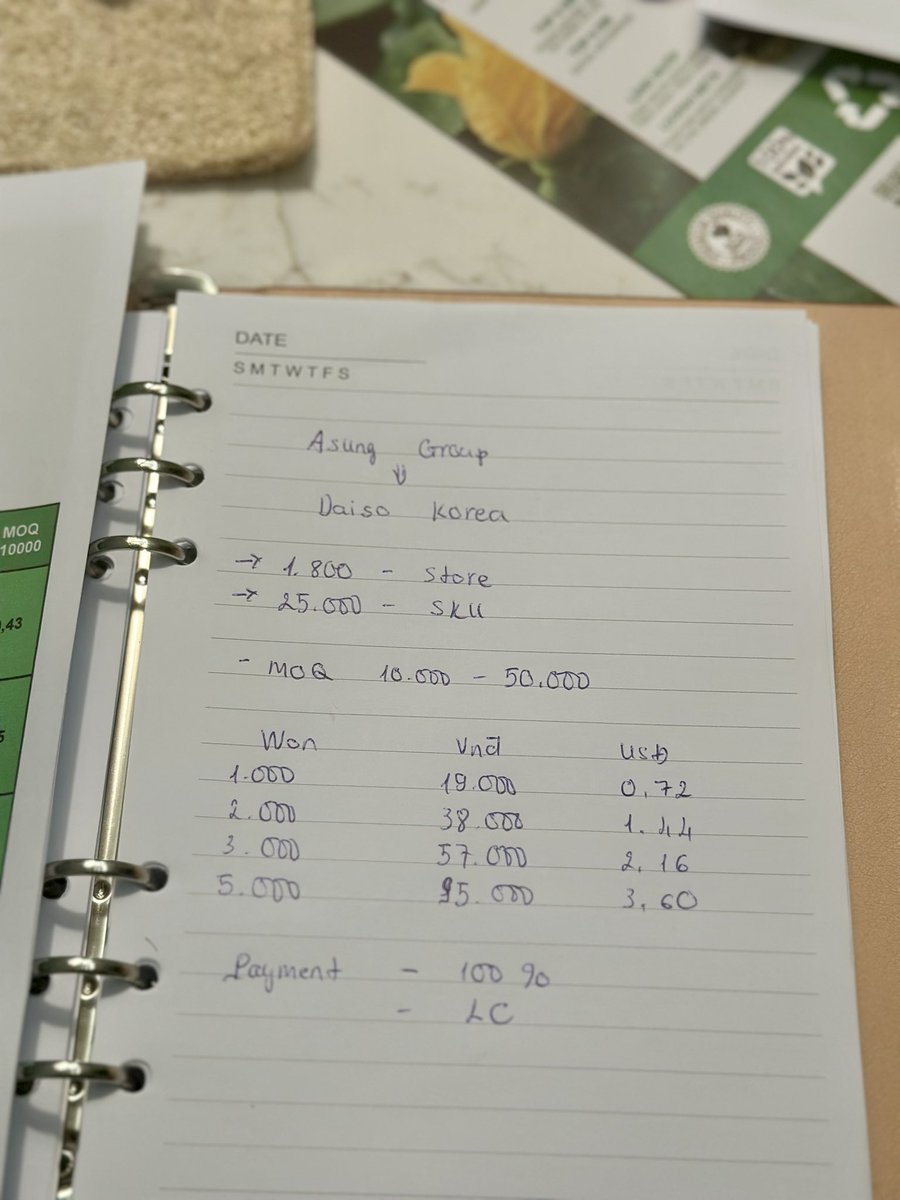 MOQ
10000
,43
5
DATE
S M T W T F S
Asung Group
⇓
Daiso Korea
→ 1.800 - Store
→ 25.000 - SKU
- MOQ 10.000 - 50.000
Won Vnđ USD
1.000 19.000 0,72
2.000 38.000 1.44
3.000 57.000 2,16
5.000 95.000 3,60
Payment - 100 %
- LC